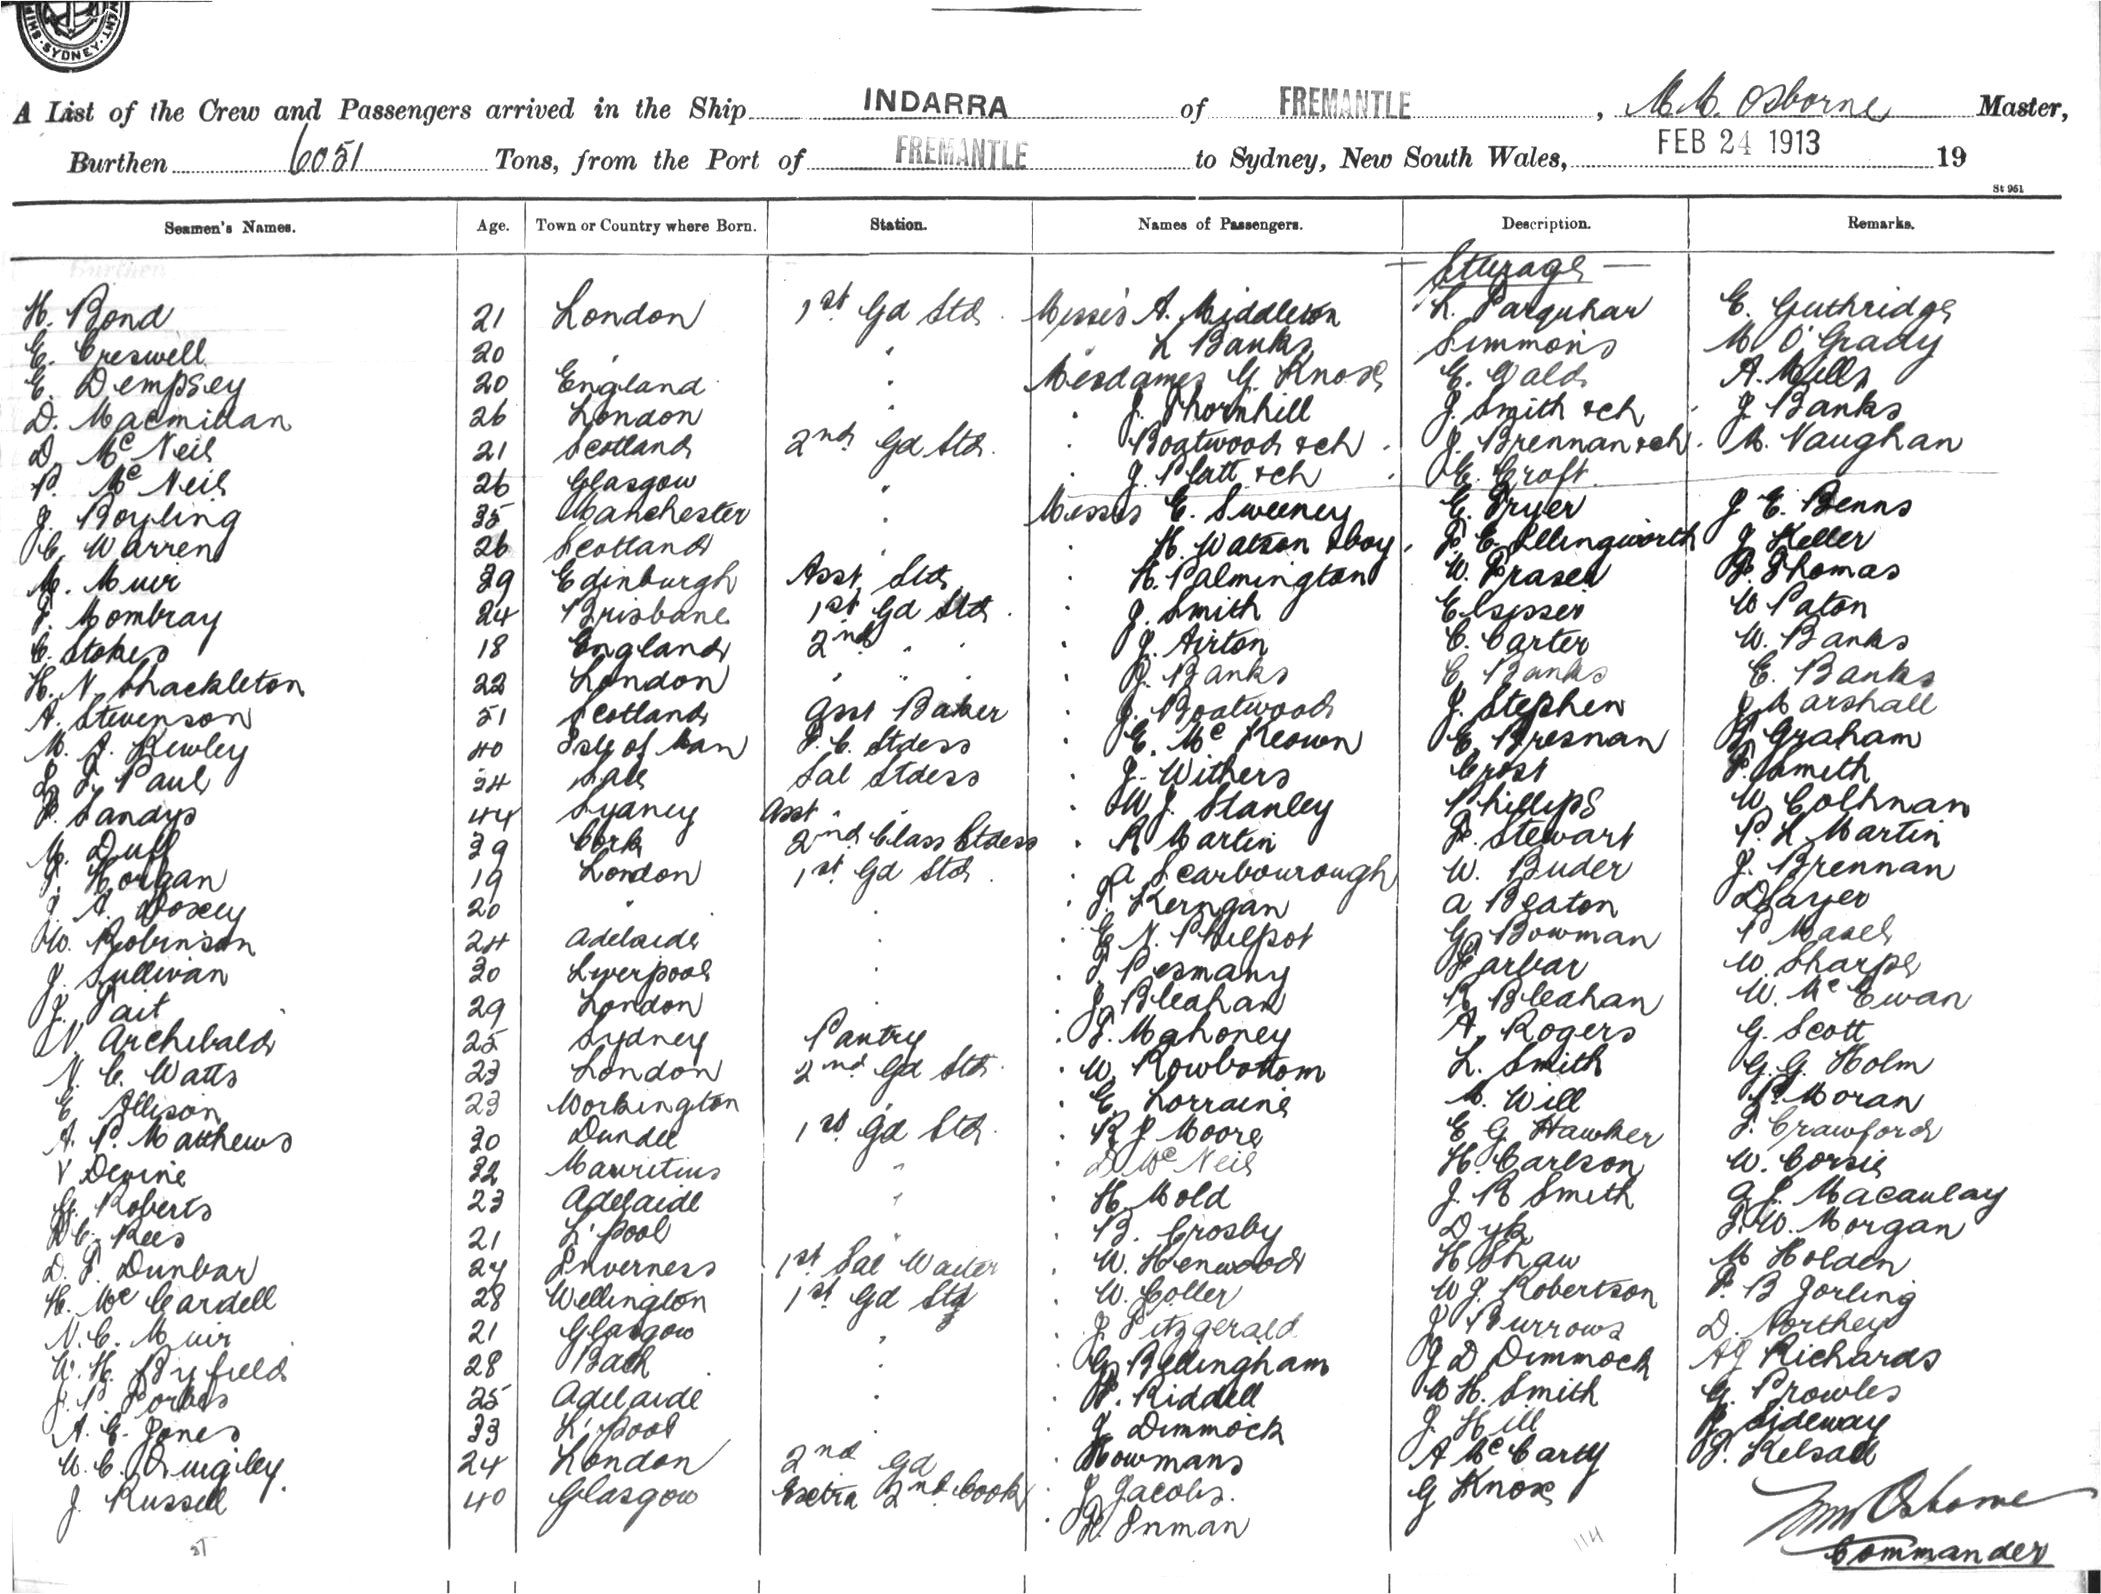 SYDNEY
A List of the Crew and Passengers arrived in the Ship INDARRA of FREMANTLE, M. M. Osborne Master,
Burthen 6051 Tons, from the Port of FREMANTLE to Sydney, New South Wales, FEB 24 1913 19
St 961
Seamen's Names. Age. Town or Country where Born. Station. Names of Passengers. Description. Remarks.
— Steerage —
H. Bond 21 London 1st Gd Std. Misses A. Middleton L. Farquhar E. Guthridge
E. Creswell 20 " " " L Banks Simmons M O'Grady
E. Dempsey 20 England " Mesdames G. Knox E. Wald A. Mills
D. Macmillan 26 London " " J. Thornhill J. Smith & ch J Banks
D. McNeil 21 Scotland 2nd Gd Std. " Boatwood & ch J. Brennan & ch M. Vaughan
P. McNeil 26 Glasgow " " J. Platt & ch E. Croft
J. Boyling 35 Manchester " Messrs E. Sweeney E. Dryer J E. Benns
C. Warren 26 Scotland " " H. Watson & boy F E. Illingworth J Keller
M. Muir 39 Edinburgh Asst Std " H. Palmington W. Fraser F. Thomas
F. Mombray 24 Brisbane 1st Gd Std " J. Smith W Paton
C. Stokes 18 England 2nd " " " J. Airton C. Carter W. Banks
H. N. Shackleton 22 London " " " " J. Banks E Banks E. Banks
A. Stevenson 51 Scotland Asst Baker " J. Boatwood J. Stephen J Marshall
M. A. Kewley 40 Isle of Man F. C. Stdess " E. McKeown E. Bresnan J Graham
L. F. Paul 34 Sale Sal Stdess " J. Withers Crost F. Smith
F. Sandys 44 Sydney Asst " " " W J. Stanley Phillips W. Colhnan
M. Duff 39 Cork 2nd Class Stdess " R Martin F. Stewart P. L Martin
F. Horgan 19 London 1st Gd Std. " A Scarbourough W. Buder J. Brennan
J. A. Doxey 20 " " J. Kerngan A Beaton D Sayer
W. Robinson 24 Adelaide " " E N. Philpot G Bowman P Masel
J. Sullivan 30 Liverpool " " F Pesmany Farbar W. Sharpe
J. Tait 29 London " " J Bleahan R Bleahan W. McEwan
N. Archibald 25 Sydney Pantry " F. Mahoney A. Rogers G. Scott
N. C. Watts 23 London 2nd Gd Std. " W. Rowbottom L. Smith G. G. Holm
E. Allison 23 Workington " E. Lorraine M. Will P. Moran
A. P. Matthews 30 Dundee 1st Gd Std. " R J Moore E G Hawker F. Crawford
V Devine 32 Mauritius " " D McNeil H. Carlson W. Corsie
G. Roberts 23 Adelaide " " H. Mold J. R Smith A J. Macaulay
D C. Rees 21 L'pool " B. Crosby Dyk F. W. Morgan
D. F. Dunbar 24 Inverness 1st Sal Waiter " W. Henwood H Shaw M Holden
H. McCardell 28 Wellington 1st Gd Std " W. Coller W J. Robertson F. B Jorling
N. C. Muir 21 Glasgow " " J. Fitzgerald J Burrows D. Northey
W. H. Byfield 28 Bath " " G. Bellingham J D Dimmock A J Richards
J. P. Forbes 25 Adelaide " " F. Riddell W H. Smith G. Prowles
A. E. Jones 33 L'pool " " J Dimmock J Hill F. Sideway
W. C. Quigley. 24 London 2nd Gd " Howmans A McCarty F. Kelsall
J. Russell 40 Glasgow Extra 2nd Cook " J Jacobs. G Knox
" H. Inman
37 114
Mm Osborne
Commander